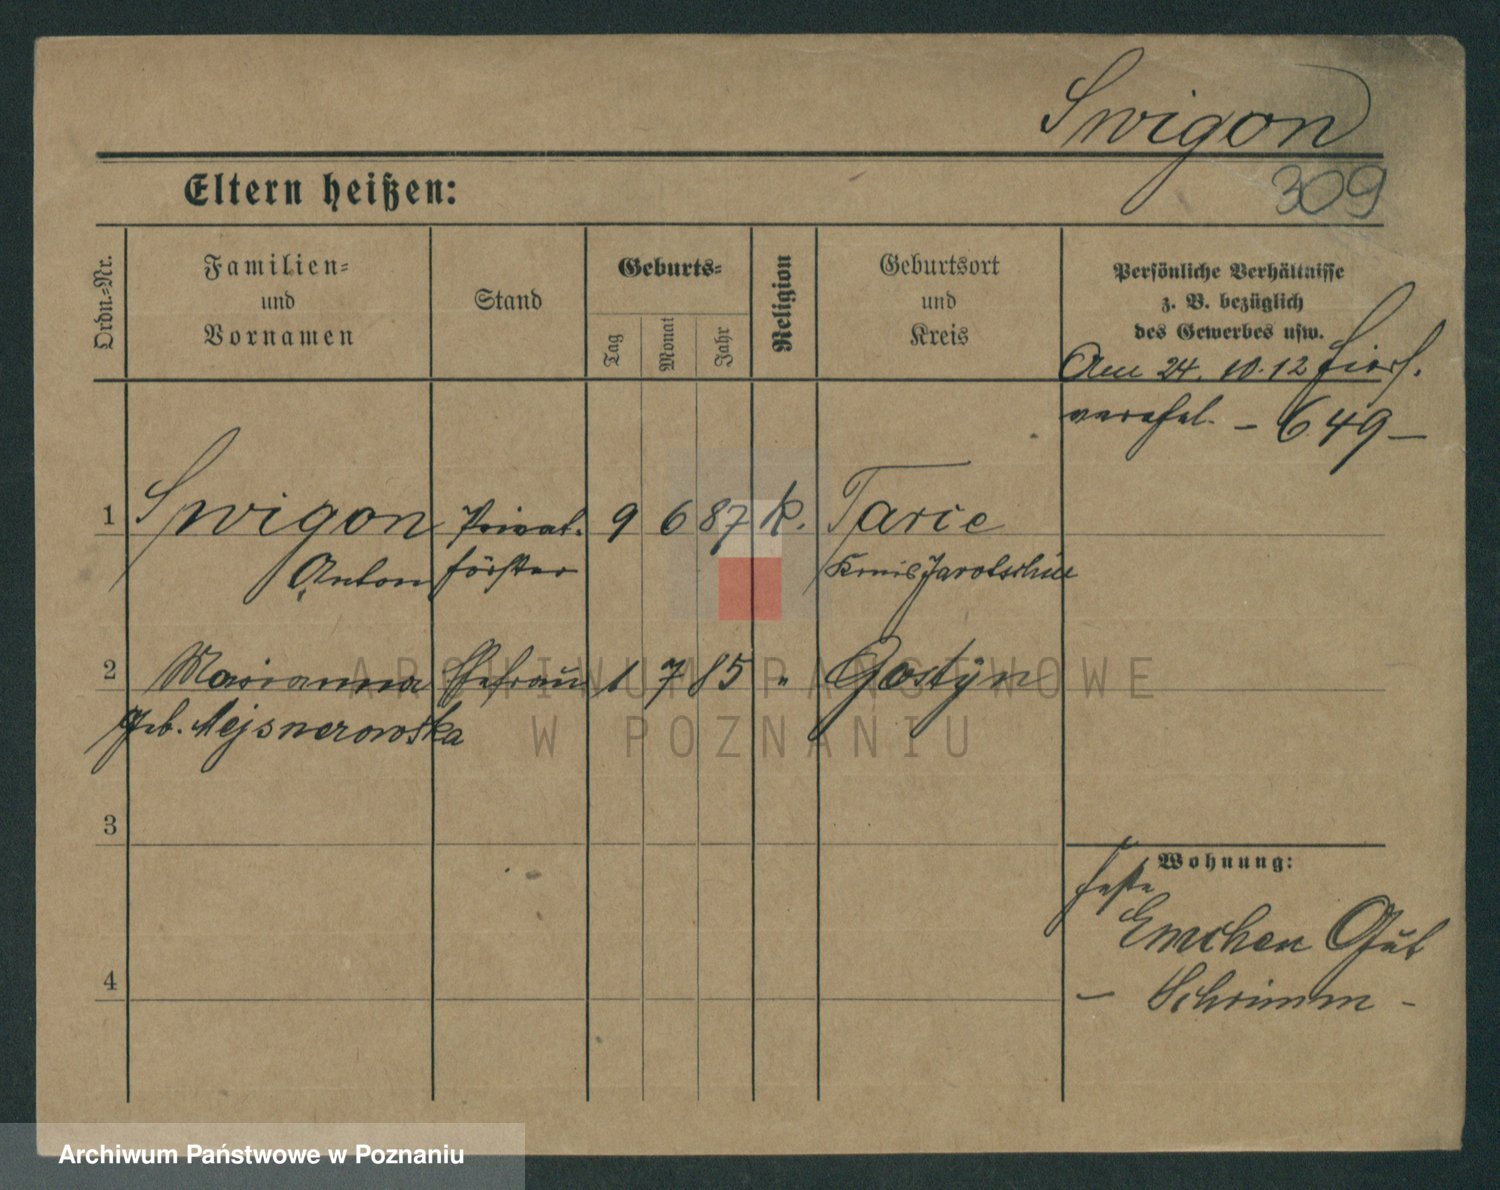 Swigon
309
Eltern heißen:
Ordn.-Nr.
Familien-
und
Vornamen
Stand
Geburts-
Tag
Monat
Jahr
Religion
Geburtsort
und
Kreis
Persönliche Verhältnisse
z. B. bezüglich
des Gewerbes usw.
Am 24. 10. 12 hier
verehel. – 649 –
1 Swigon Privat- 9 6 87 k. Tarce
Anton förster Kreis Jarotschin
2 Marianna Ehefrau 1 7 85 " Gostyn
geb. Mejsnerowska
3
Wohnung:
Emchen Gut
4
– Schrimm –
ARCHIWUM PAŃSTWOWE
W POZNANIU
Archiwum Państwowe w Poznaniu